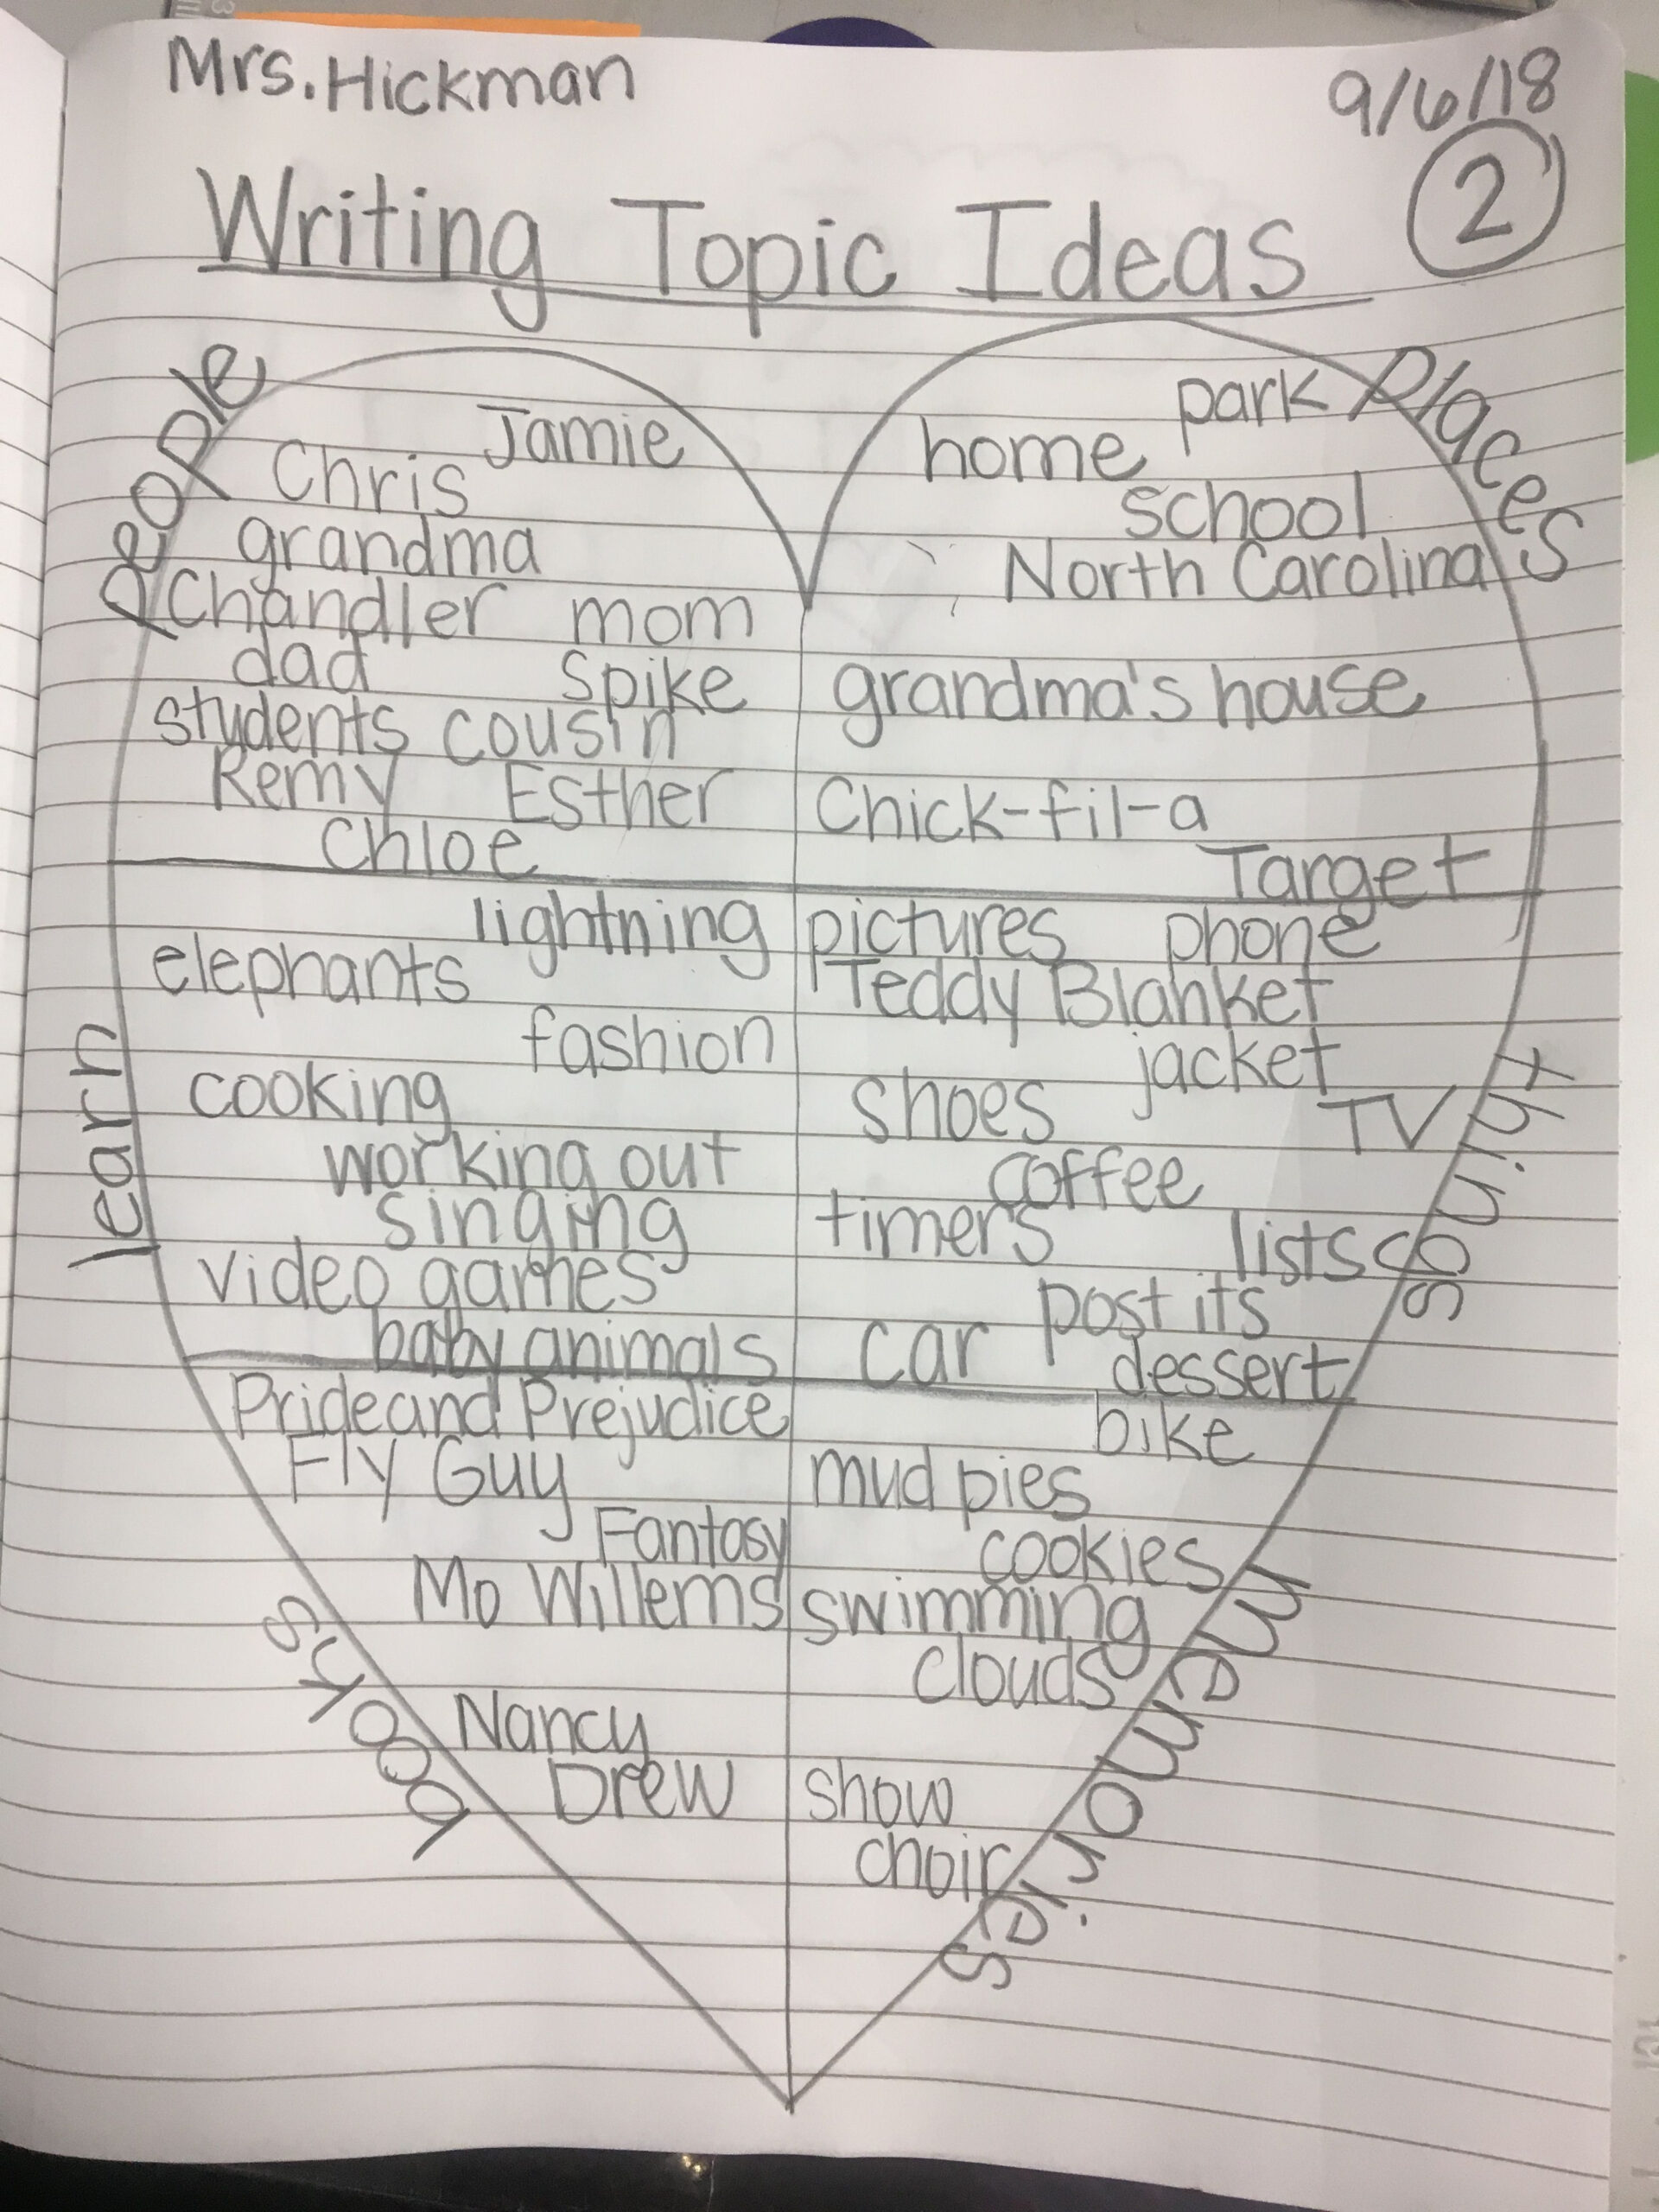 Mrs. Hickman
9/6/18
2
Writing Topic Ideas
people
Jamie
Chris
grandma
Chandler mom
dad spike
students cousin
Remy Esther
Chloe
Places
park
home
school
North Carolina
grandma's house
Chick-fil-a
Target
learn
lightning
elephants
fashion
cooking
working out
singing
video games
baby animals
things
pictures phone
Teddy Blanket
jacket
shoes TV
coffee
timers lists
post its
car dessert
books
Pride and Prejudice
Fly Guy
Fantasy
Mo Willems
Nancy
Drew
memories
bike
mud pies
cookies
swimming
clouds
show
choir